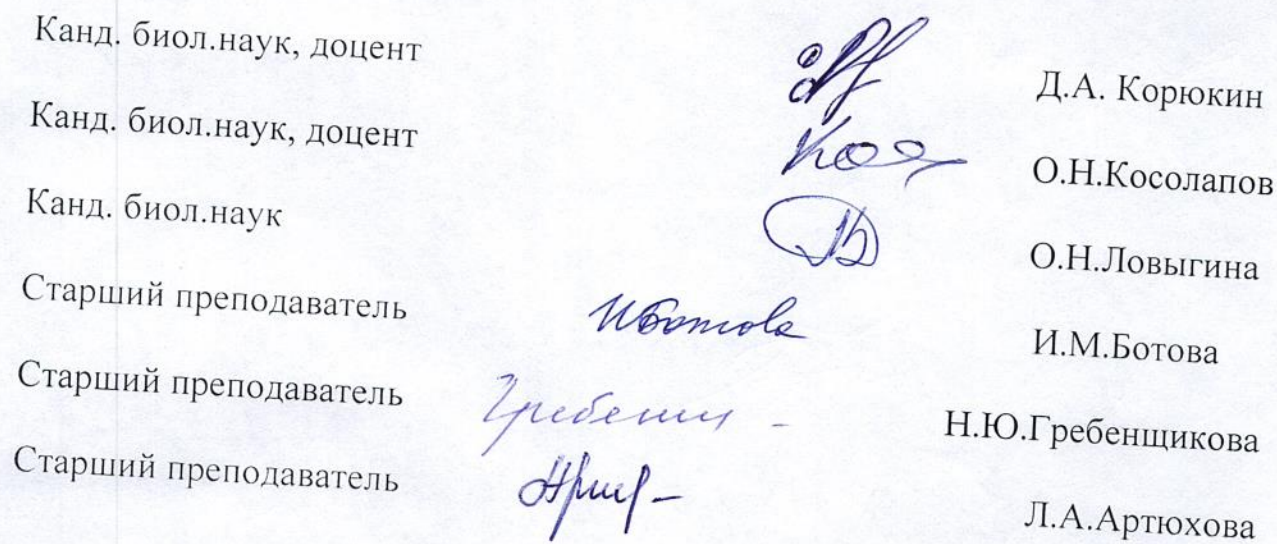 Канд. биол.наук, доцент Д.А. Корюкин
Канд. биол.наук, доцент О.Н.Косолапов
Канд. биол.наук О.Н.Ловыгина
Старший преподаватель ИБотова И.М.Ботова
Старший преподаватель Н.Ю.Гребенщикова
Старший преподаватель Л.А.Артюхова